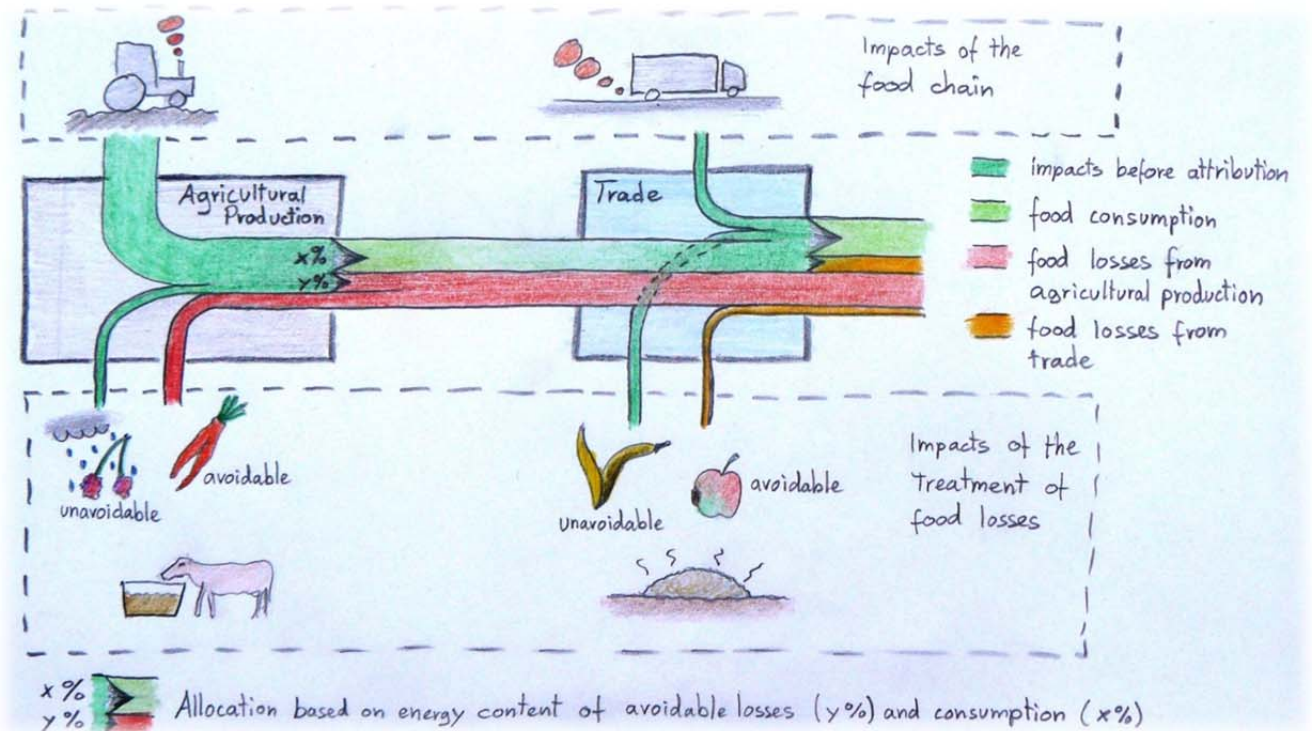 Impacts of the
food chain
Agricultural
Production
x%
y%
Trade
impacts before attribution
food consumption
food losses from
agricultural production
food losses from
trade
avoidable
unavoidable
avoidable
unavoidable
Impacts of the
treatment of
food losses
x %
y %
Allocation based on energy content of avoidable losses (y%) and consumption (x%)